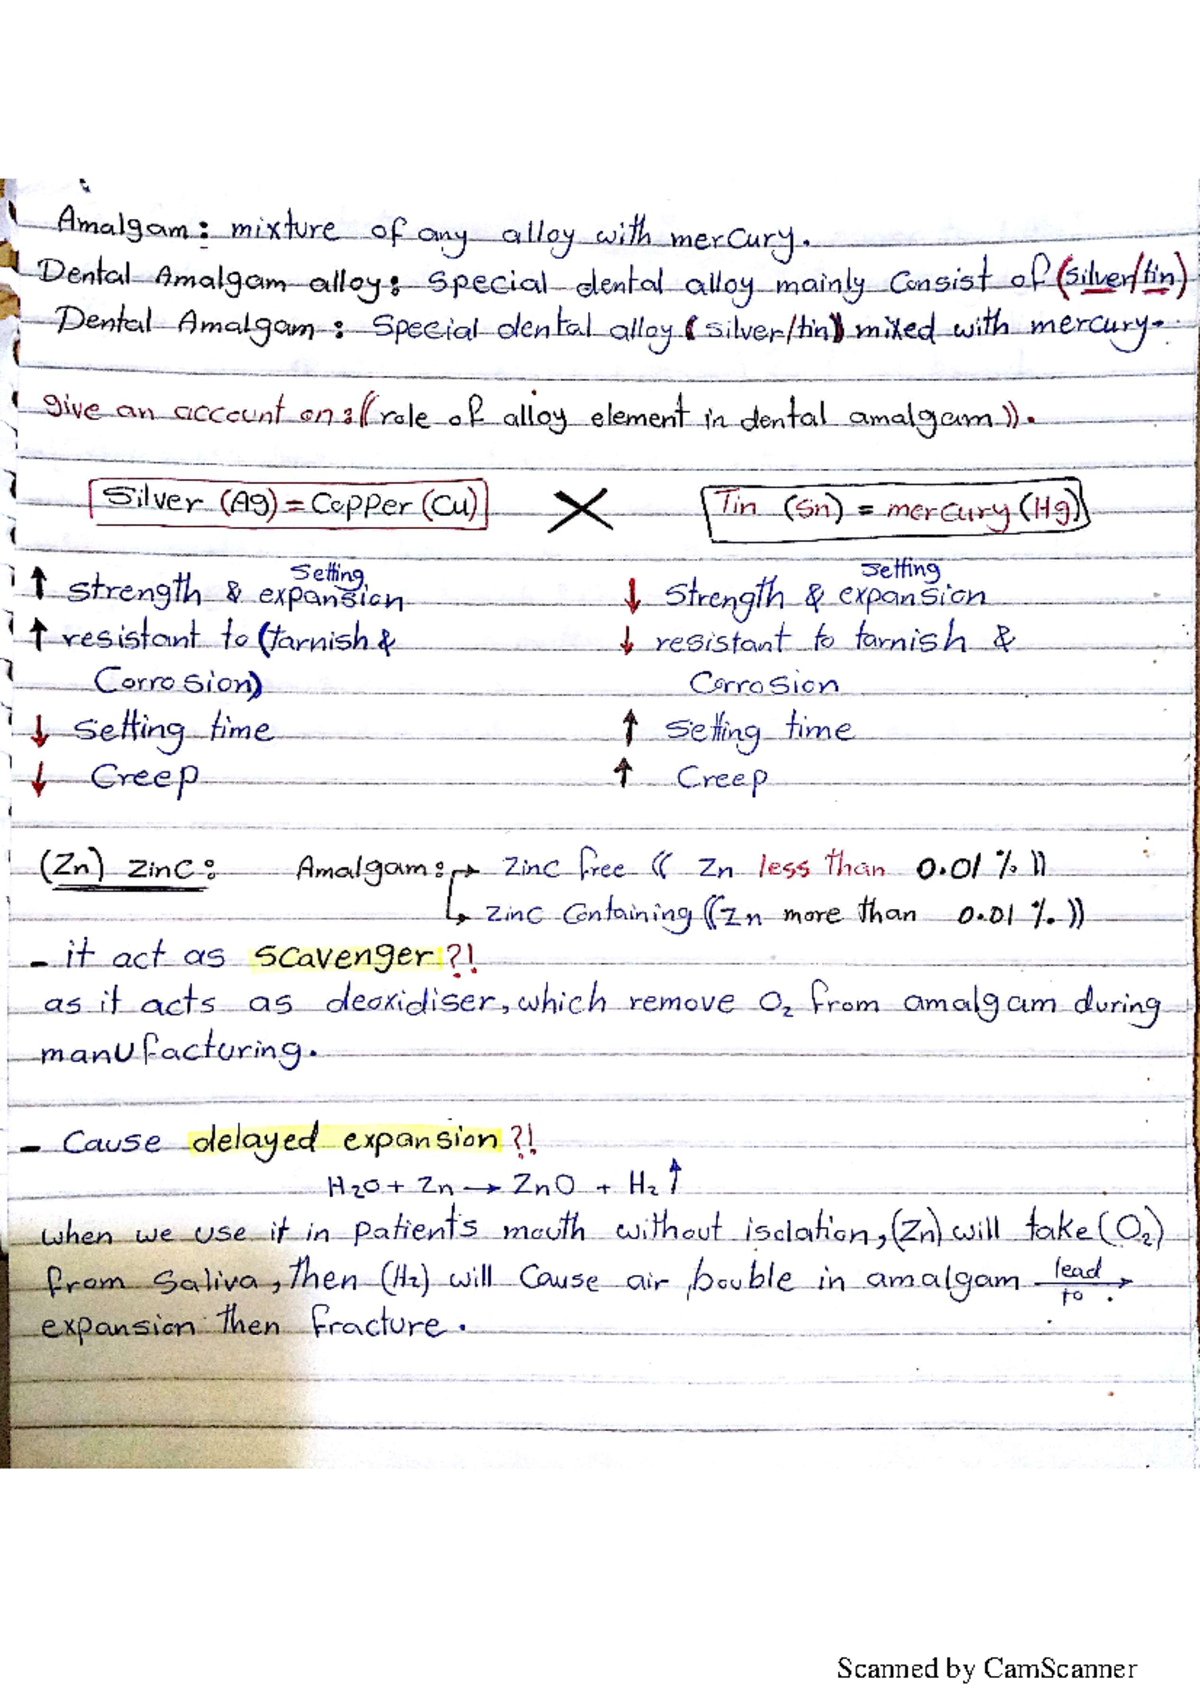 Amalgam: mixture of any alloy with mercury.
Dental Amalgam alloy: Special dental alloy mainly Consist of (silver/tin)
Dental Amalgam: Special dental alloy (silver/tin) mixed with mercury.
give an account on: ((role of alloy element in dental amalgam)).
Silver (Ag) = Copper (Cu) X Tin (Sn) = mercury (Hg)
↑ strength & setting expansion ↓ Strength & setting expansion
↑ resistant to (tarnish & ↓ resistant to tarnish &
Corrosion) Corrosion
↓ Setting time ↑ Setting time
↓ Creep ↑ Creep
(Zn) zinc: Amalgam: → Zinc free (( Zn less than 0.01 % ))
↳ zinc Containing ((Zn more than 0.01 %. ))
- it act as scavenger ?!
as it acts as deoxidiser, which remove O2 from amalgam during
manufacturing.
- Cause delayed expansion ?!
H2O + Zn → ZnO + H2 ↑
when we use it in patient's mouth without isolation, (Zn) will take (O2)
from Saliva, then (H2) will Cause air bouble in amalgam lead to →
expansion then fracture.
Scanned by CamScanner